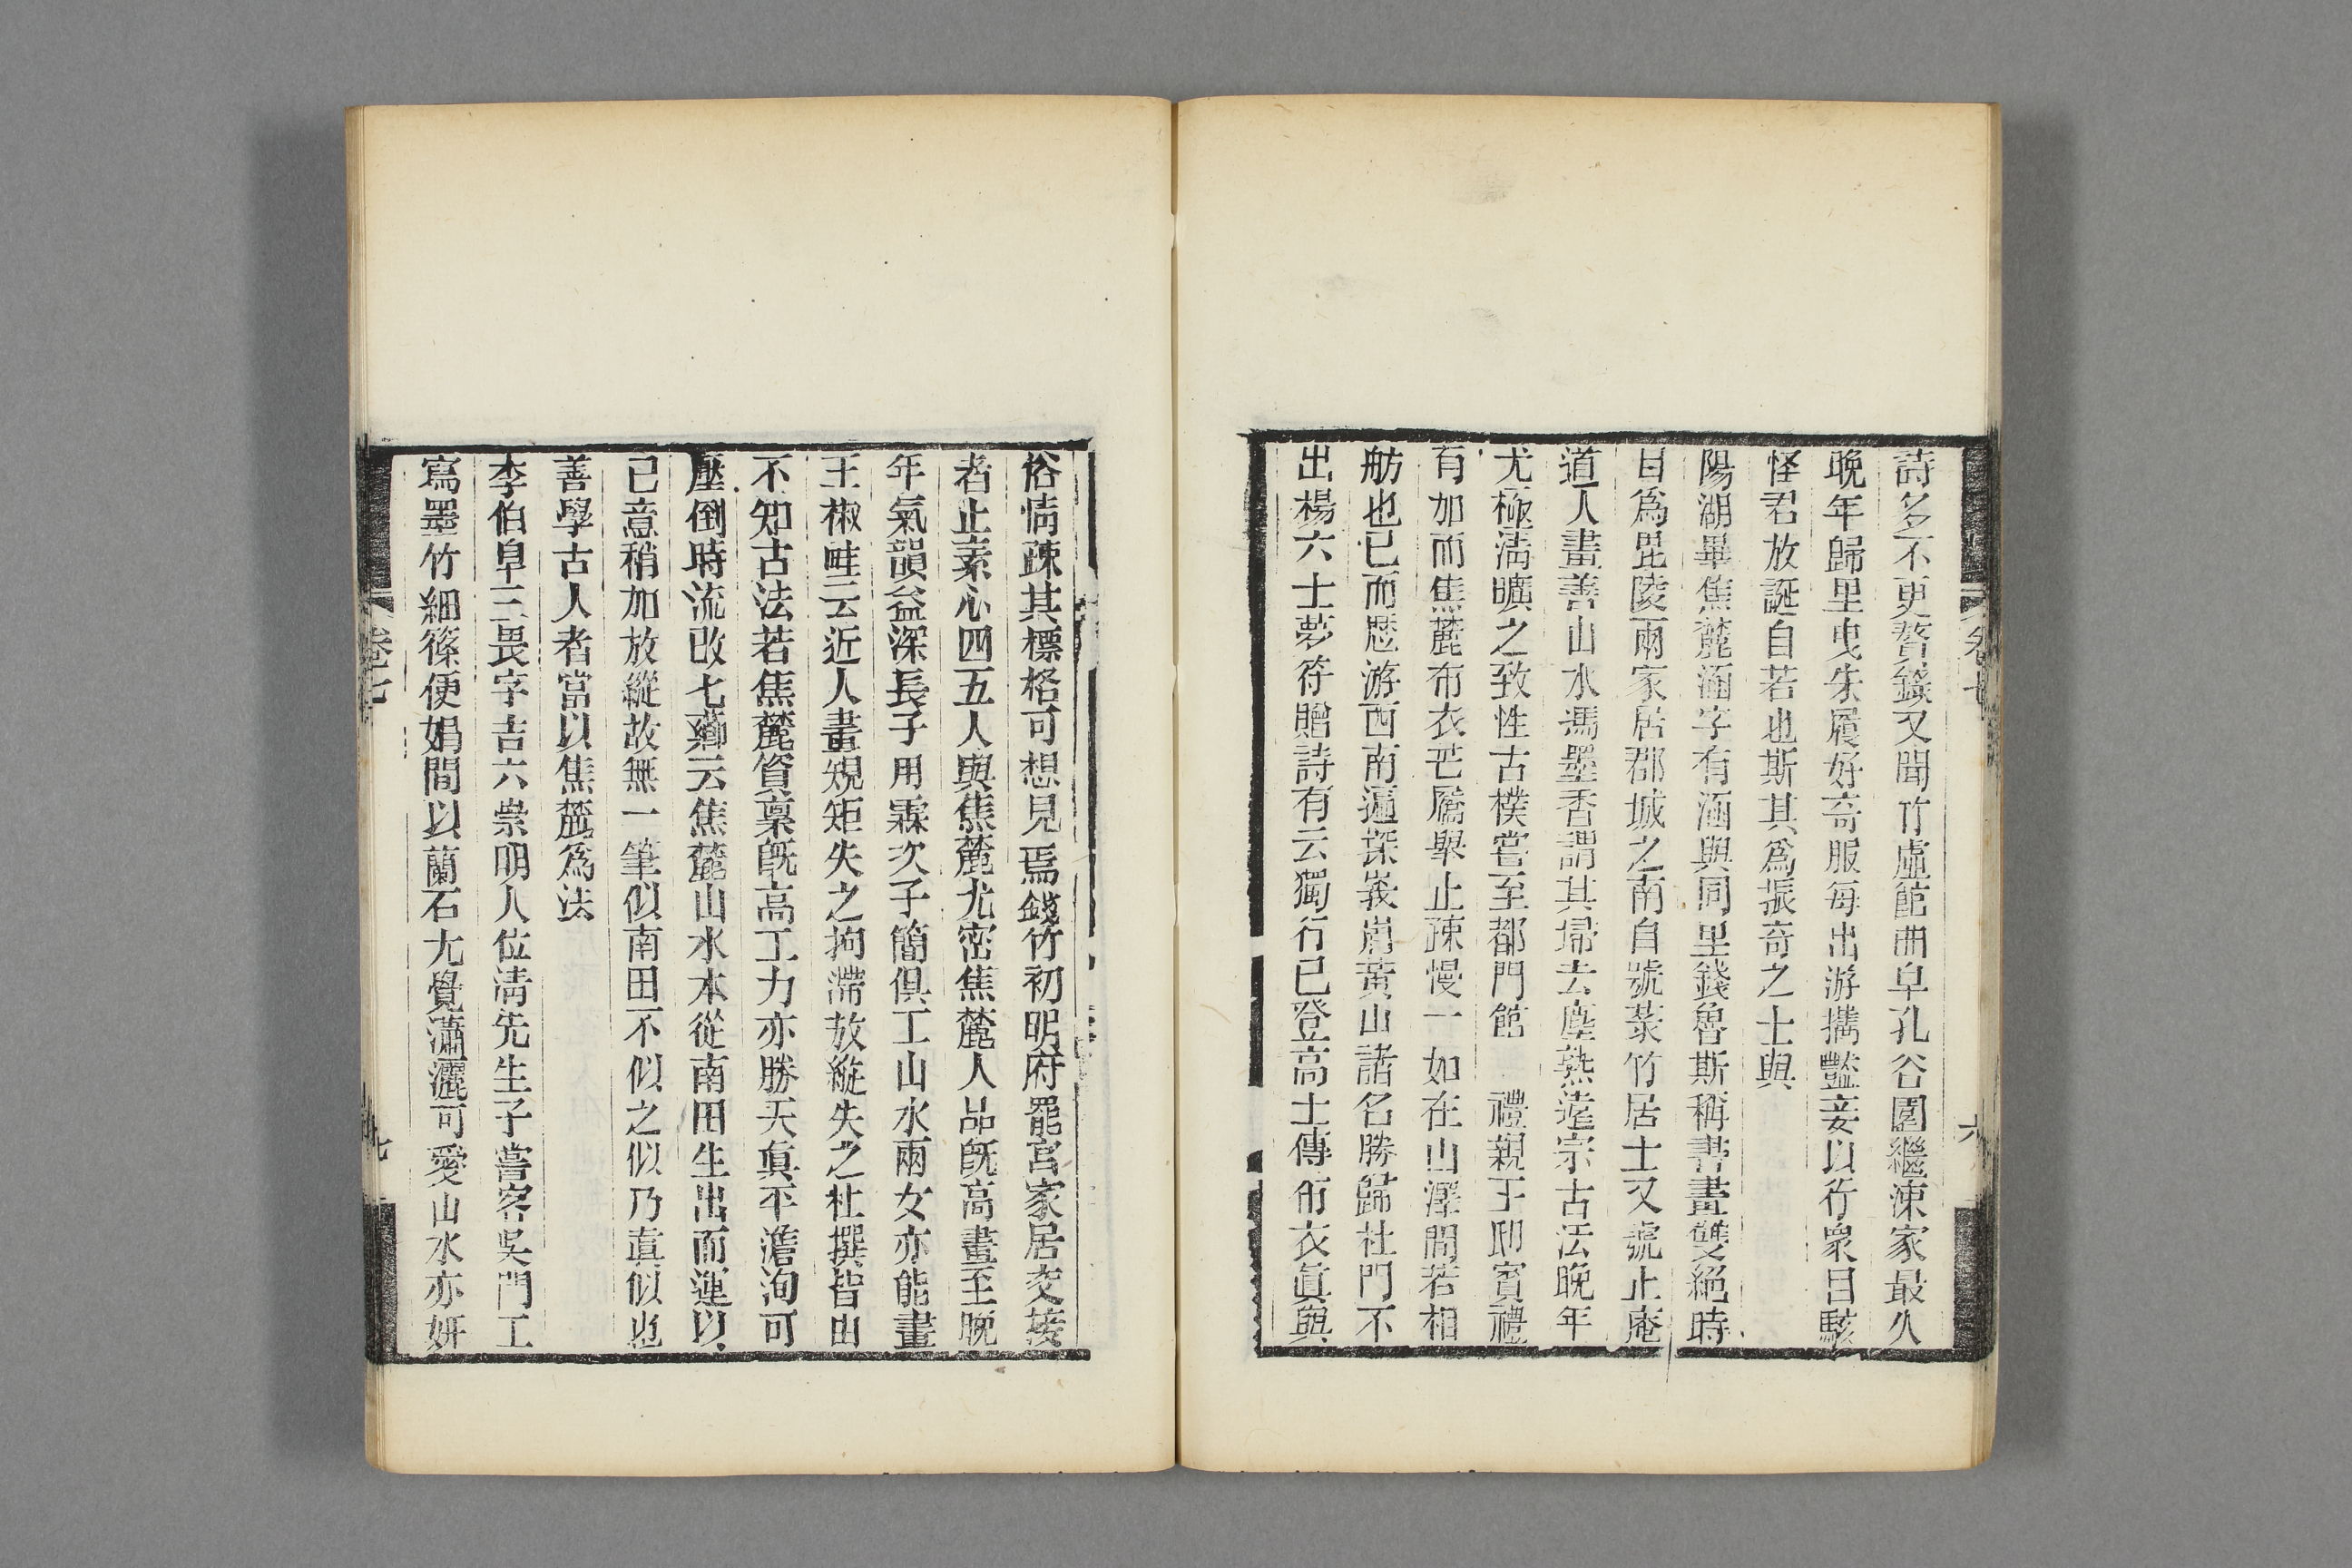 詩多不更贅錄又聞竹虛館曲阜孔谷園繼涑家最久
晚年歸里曳朱履好奇服每出游攜豔妾以行衆目駭
怪君放誕自若也斯其爲振奇之士與
陽湖畢焦麓涵字有涵與同里錢魯斯稱書畫雙絕時
目爲毘陵兩家居郡城之南自號菉竹居士又號止庵
道人畫善山水馮墨香謂其掃去塵熟遠宗古法晚年
尤極淸曠之致性古樸嘗至都門館 禮親王邸賓禮
有加而焦麓布衣芒屩舉止疎慢一如在山澤閒若相
舫也已而歷游西南遍探峩嵋黃山諸名勝歸杜門不
出楊六士夢符贈詩有云獨行已登高士傳布衣眞與
卷七
六
俗情疎其標格可想見焉錢竹初明府罷官家居交接
者止素心四五人與焦麓尤密焦麓人品旣高畫至晚
年氣韻益深長子用霖次子簡俱工山水兩女亦能畫
王椒畦云近人畫規矩失之拘滯放縱失之杜撰皆由
不知古法若焦麓資稟旣高工力亦勝天眞平澹洵可
壓倒時流改七薌云焦麓山水本從南田生出而運以
己意稍加放縱故無一筆似南田不似之似乃眞似也
善學古人者當以焦麓爲法
李伯阜三畏字吉六崇明人位淸先生子嘗客吳門工
寫墨竹細篠便娟閒以蘭石尤覺瀟灑可愛山水亦妍
卷七
七